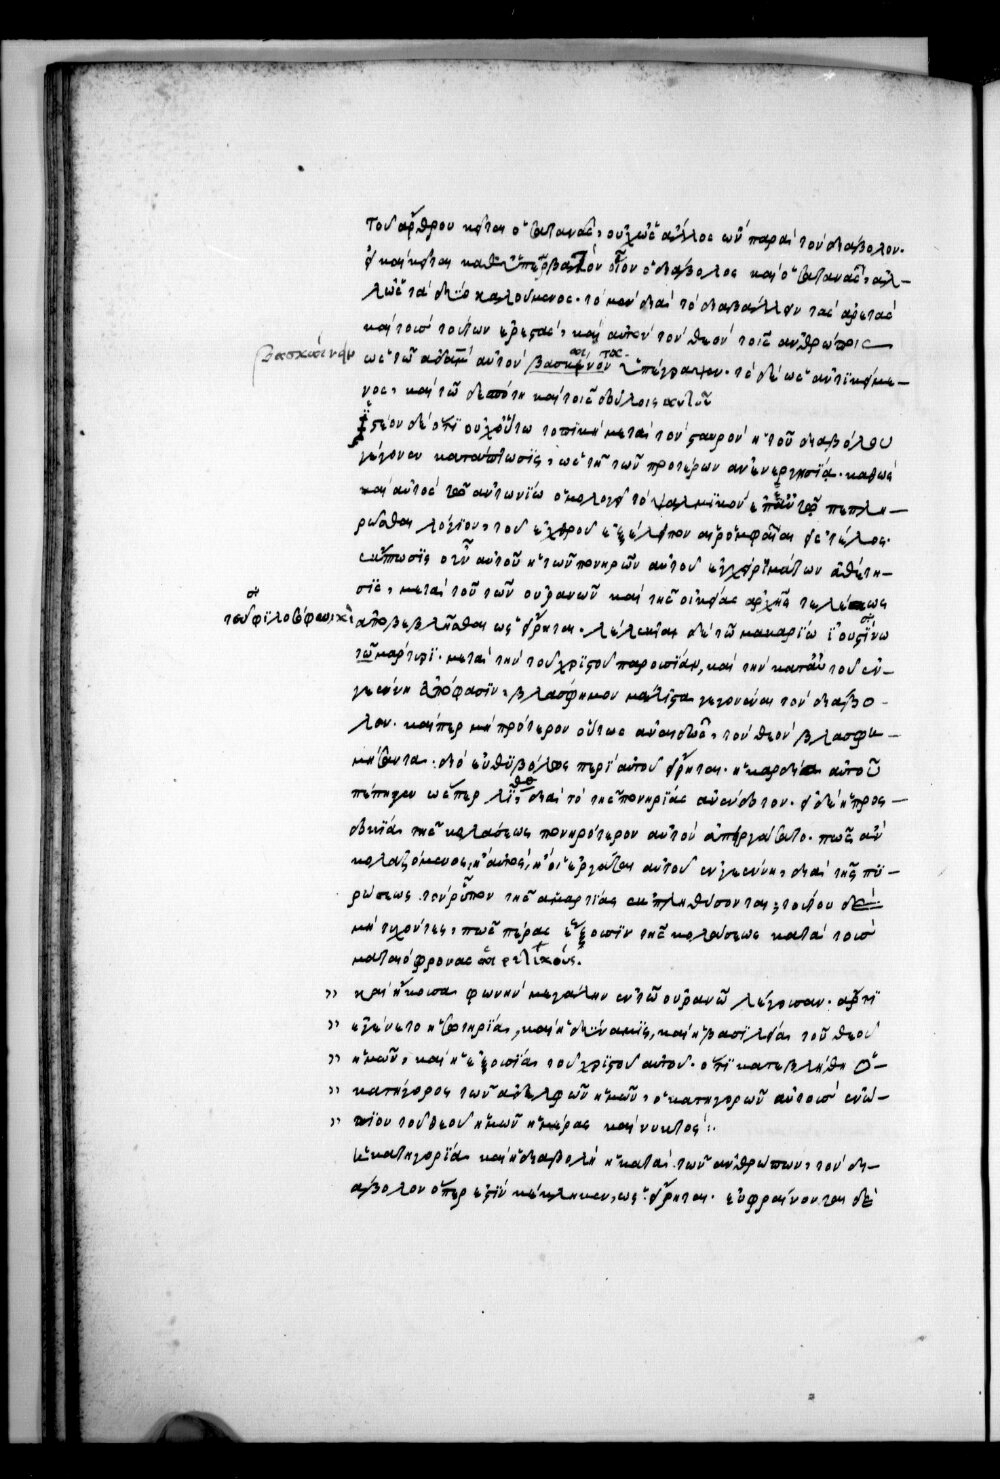 τοῦ ἄρθρου κεῖται ὁ σατανᾶς, οὐχ ὡς ἄλλος ὢν παρὰ τὸν διάβολον.
εἰ καὶ κεῖται καθ' ὑπερβατὸν οἷον ὁ διάβολος καὶ ὁ σατανᾶς, ἀλ-
λως τὰ δύο καλούμενος. τὸ μὲν διὰ τὸ διαβάλλειν τὰς ἀρετὰς
καὶ τοὺς τούτων ἐραστὰς, καὶ αὐτὸν τὸν θεὸν τοῖς ἀνθρώποις
βασκαίνειν
ὡς τῷ ἀδὰμ αὐτὸν βάσκανον ὑπέγραψεν. τὸ δὲ ὡς ἀντικείμε-
νος, καὶ τῷ δεσπότῃ καὶ τοῖς δούλοις αὐτοῦ
ἰστέον δὲ ὅτι οὐχ οὕτω τοπικὴ μετὰ τὸν σταυρὸν ἡ τοῦ διαβόλου
γέγονεν κατάπτωσις, ὡς τῆς τῶν προτέρων ἀνενεργησία. καθὼς
καὶ αὐτὸς τῷ ἀντωνίῳ ὁμολογεῖ τὸ ψαλμικὸν ἐπ' αὐτῷ πεπλη-
ρῶσθαι λόγιον, τοῦ ἐχθροῦ ἐξέλιπον αἱ ρομφαῖαι εἰς τέλος.
ἔκπτωσις οὖν αὐτοῦ ἡ τῶν πονηρῶν αὐτοῦ ἐγχειρημάτων ἀθέτη-
σις, μετὰ τοῦ τῶν οὐρανῶν καὶ τῆς οἰκείας ἀρχῆς τελέως
ἀποβεβλῆσθαι ὡς εἴρηται. λέλεκται δὲ τῷ μακαρίῳ ἰουστίνῳ
τῷ μάρτυρι. μετὰ τὴν τοῦ χριστοῦ παρουσίαν, καὶ τὴν κατ' αὐτοῦ ἐν
γεέννῃ ἀπόφασιν, βλάσφημον μάλιστα γεγονέναι τὸν διάβο-
λον. καίπερ μὴ πρότερον οὕτως ἀναιδῶς, τὸν θεὸν βλασφη-
μήσαντα. διὸ εὐθυβόλως περὶ αὐτοῦ εἴρηται. ἡ καρδία αὐτοῦ
πέπηγεν ὥσπερ λίθος διὰ τὸ τῆς πονηρίας ἀνένδοτον. εἰ δὲ ἡ προσ-
δοκία τῆς κολάσεως πονηρότερον αὐτὸν ἀπειργάσατο. πῶς ἂν
κολαζόμενος, ἢ αὐτὸς, ἢ οἱ ἐργάται αὐτοῦ ἐν γεέννῃ, διὰ τῆς πυ-
ρώσεως τὸν ρύπον τῆς ἁμαρτίας ἐκπλυθήσονται, τούτου δὲ
μὴ τυχόντες, πῶς πέρας ἕξουσιν τῆς κολάσεως κατὰ τοὺς
ματαιόφρονας αἱρετικούς.
» καὶ ἤκουσα φωνὴν μεγάλην ἐν τῷ οὐρανῷ λέγουσαν. ἄρτι
» ἐγένετο ἡ σωτηρία, καὶ ἡ δύναμις, καὶ ἡ βασιλεία τοῦ θεοῦ
» ἡμῶν, καὶ ἡ ἐξουσία τοῦ χριστοῦ αὐτοῦ. ὅτι κατεβλήθη ὁ
» κατήγορος τῶν ἀδελφῶν ἡμῶν, ὁ κατηγορῶν αὐτοὺς ἐνώ-
» πιον τοῦ θεοῦ ἡμῶν ἡμέρας καὶ νυκτός.
ἡ κατηγορία καὶ ἡ διαβολὴ ἡ κατὰ τῶν ἀνθρώπων, τὸν δι-
άβολον ὅπερ ἐστὶν κέκληκεν, ὡς εἴρηται. εὐφραίνονται δὲ